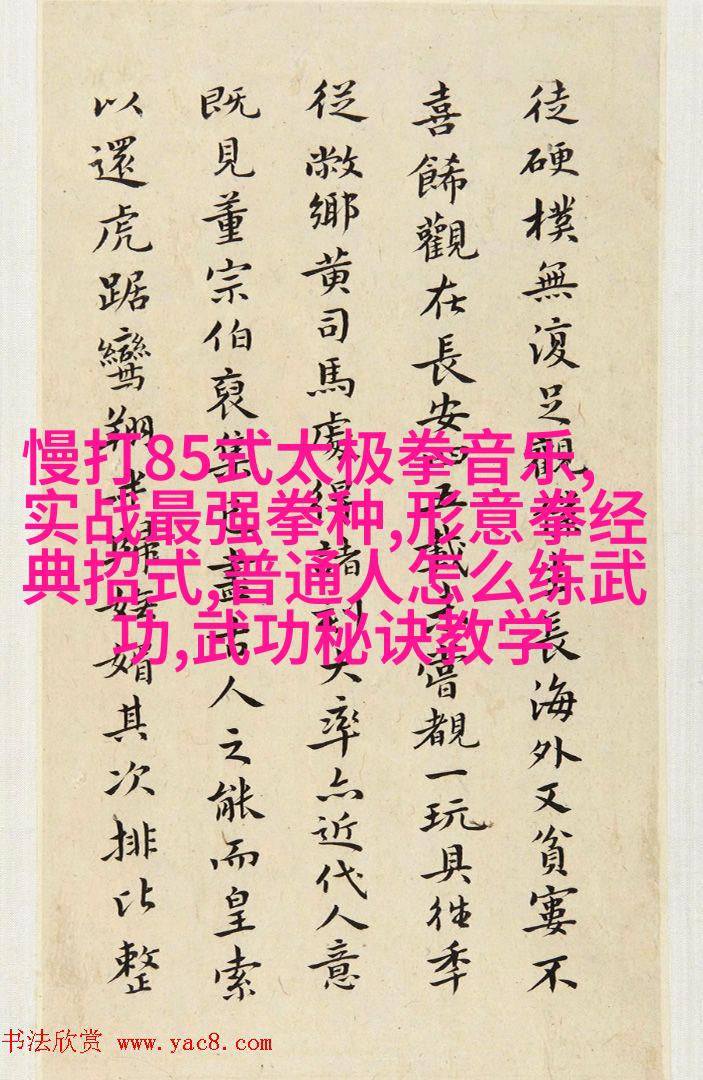 徒硬樸無復足觀長海外又貧寠不
喜餙觀在長安四五載嘗覩一玩具往季
從敝鄉黄司馬處得諸大率亦近代人意
既見董宗伯裒集古人之能而皇索
以還虎踞鸞翔媚其次排比整
慢打85式太极拳音乐,
实战最强拳种,形意拳经
典招式,普通人怎么练武
功,武功秘诀教学
书法欣赏 www.yac8.com